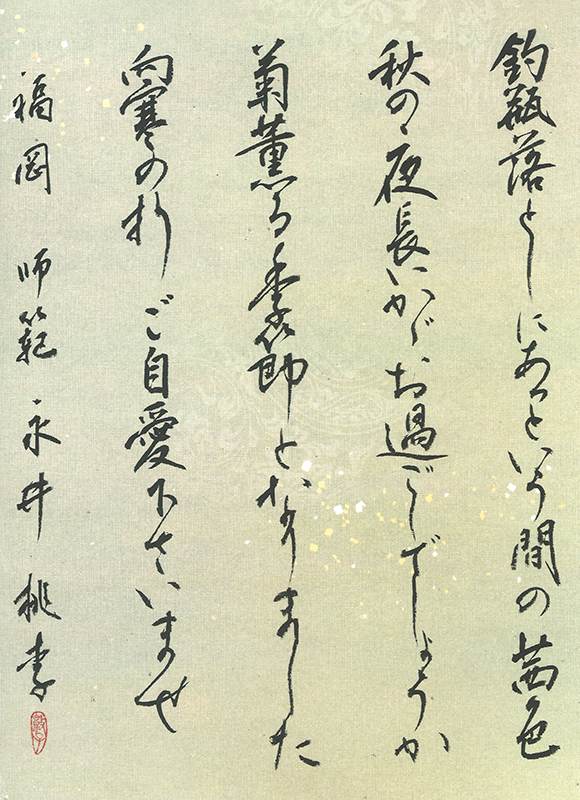 釣瓶落としにあっという間の茜色
秋の夜長いかがお過ごしでしょうか
菊薫る季節となりました
向寒の折ご自愛下さいませ
福岡 師範 永井桃李